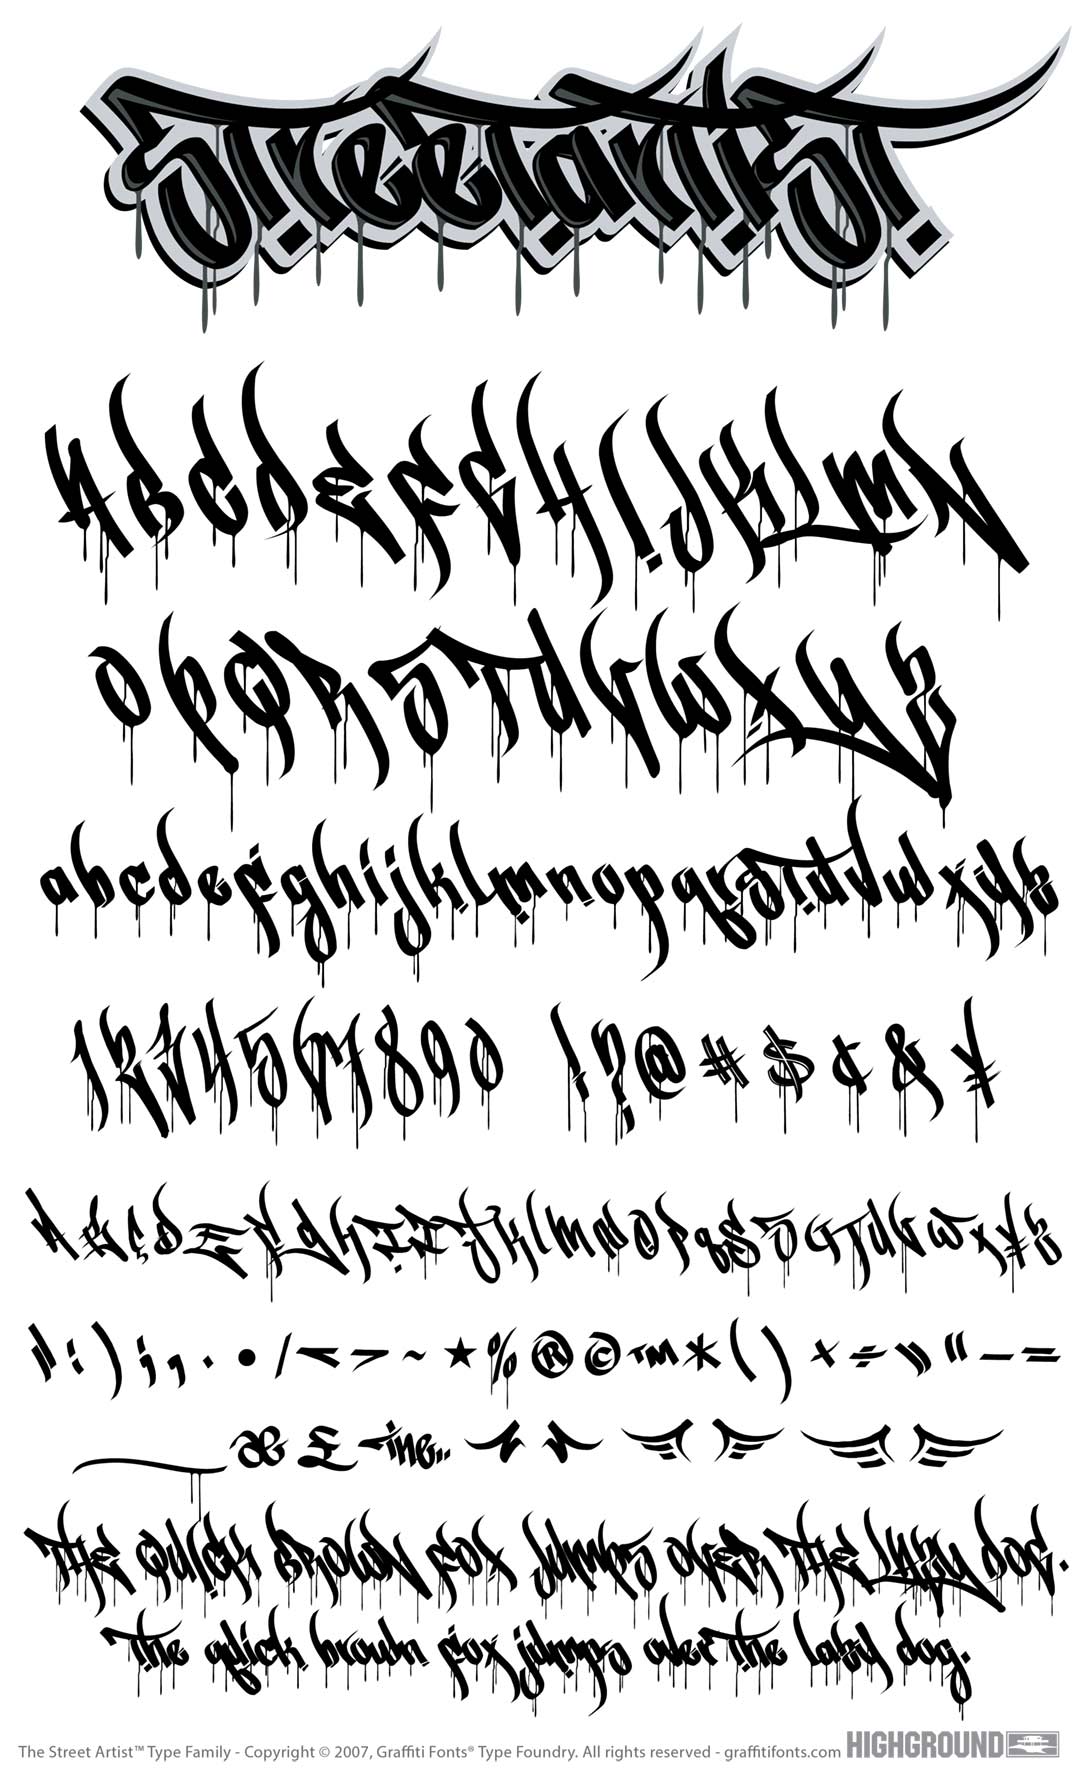 StreetartisT
ABCDEFGHIJKLMN
OPQRSTUVWXYZ
abcdefghijklmnopqrstuvwxyz
1234567890 !?@#$¢&¥
": ) ; , . • / < > ~ ★ % ® © ™ * ( ) + ÷ \\ " – =
_ æ £ -inc..
THE QUICK BROWN FOX JUMPS OVER THE LAZY DOG.
the quick brown fox jumps over the lazy dog.
The Street Artist™ Type Family - Copyright © 2007, Graffiti Fonts® Type Foundry. All rights reserved - graffitifonts.com HIGHGROUND